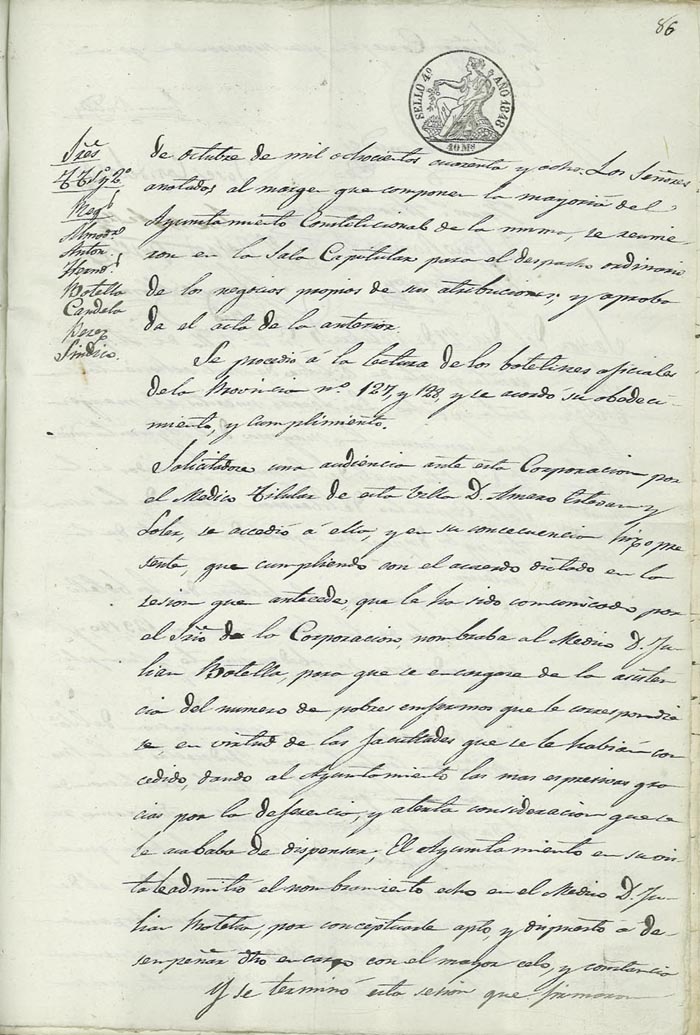 86
SELLO 4º AÑO 1848
40 Ms
Sres
Regs
Almodr
Anton
Hernds
Botella
Candela
Perez
Sindico.
de octubre de mil ochocientos cuarenta y ocho. Los Señores
anotados al margen que componen la mayoria del
Ayuntamiento Constitucional de la misma, se reunie
ron en la Sala Capitular para el despacho ordinario
de los negocios propios de sus atribuciones, y aproba
da el acta de la anterior.
Se procedió á la lectura de los boletines oficiales
de la Provincia nº 127, y 128, y se acordó su obedeci
miento, y cumplimiento.
Solicitadose una audiencia ante esta Corporacion por
el Medico titular de esta Villa D. Amaro Estevan y
Soler, se accedió á ella, y en su concecuencia hizo pre
sente, que cumpliendo con el acuerdo dictado en la
sesion que antecede, que le ha sido comunicado por
el Srio de la Corporacion, nombraba al Medico D. Ju
lian Botella, para que se encargare de la asisten
cia del numero de pobres enfermos que le correspondie
se en virtud de las facultades que se le habian con
cedido, dando al Ayuntamiento las mas espresivas gra
cias por la deferencia, y atenta consideracion que se
le acababa de dispensar, El Ayuntamiento en su vis
ta admitió el nombramiento echo en el Medico D. Ju
lian Botella, por conceptuarle apto, y dispuesto a de
sempeñar dho encargo con el mayor celo, y constancia
Y se terminó esta sesion que firmaron